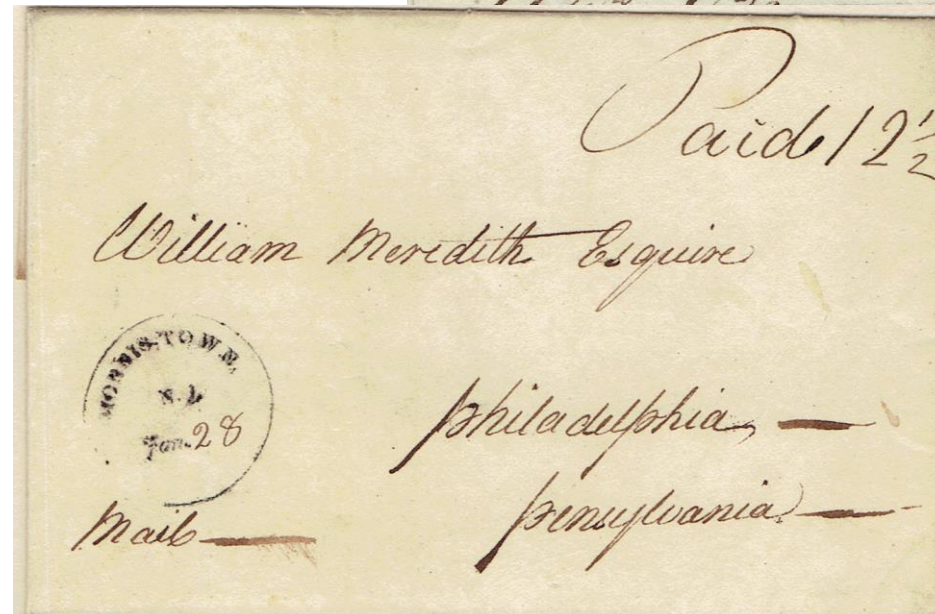 Paid 12½
William Meredith Esquire
MORRIS.TOWN.
N.J.
Jan. 28
Philadelphia
Mail
Pensylvania